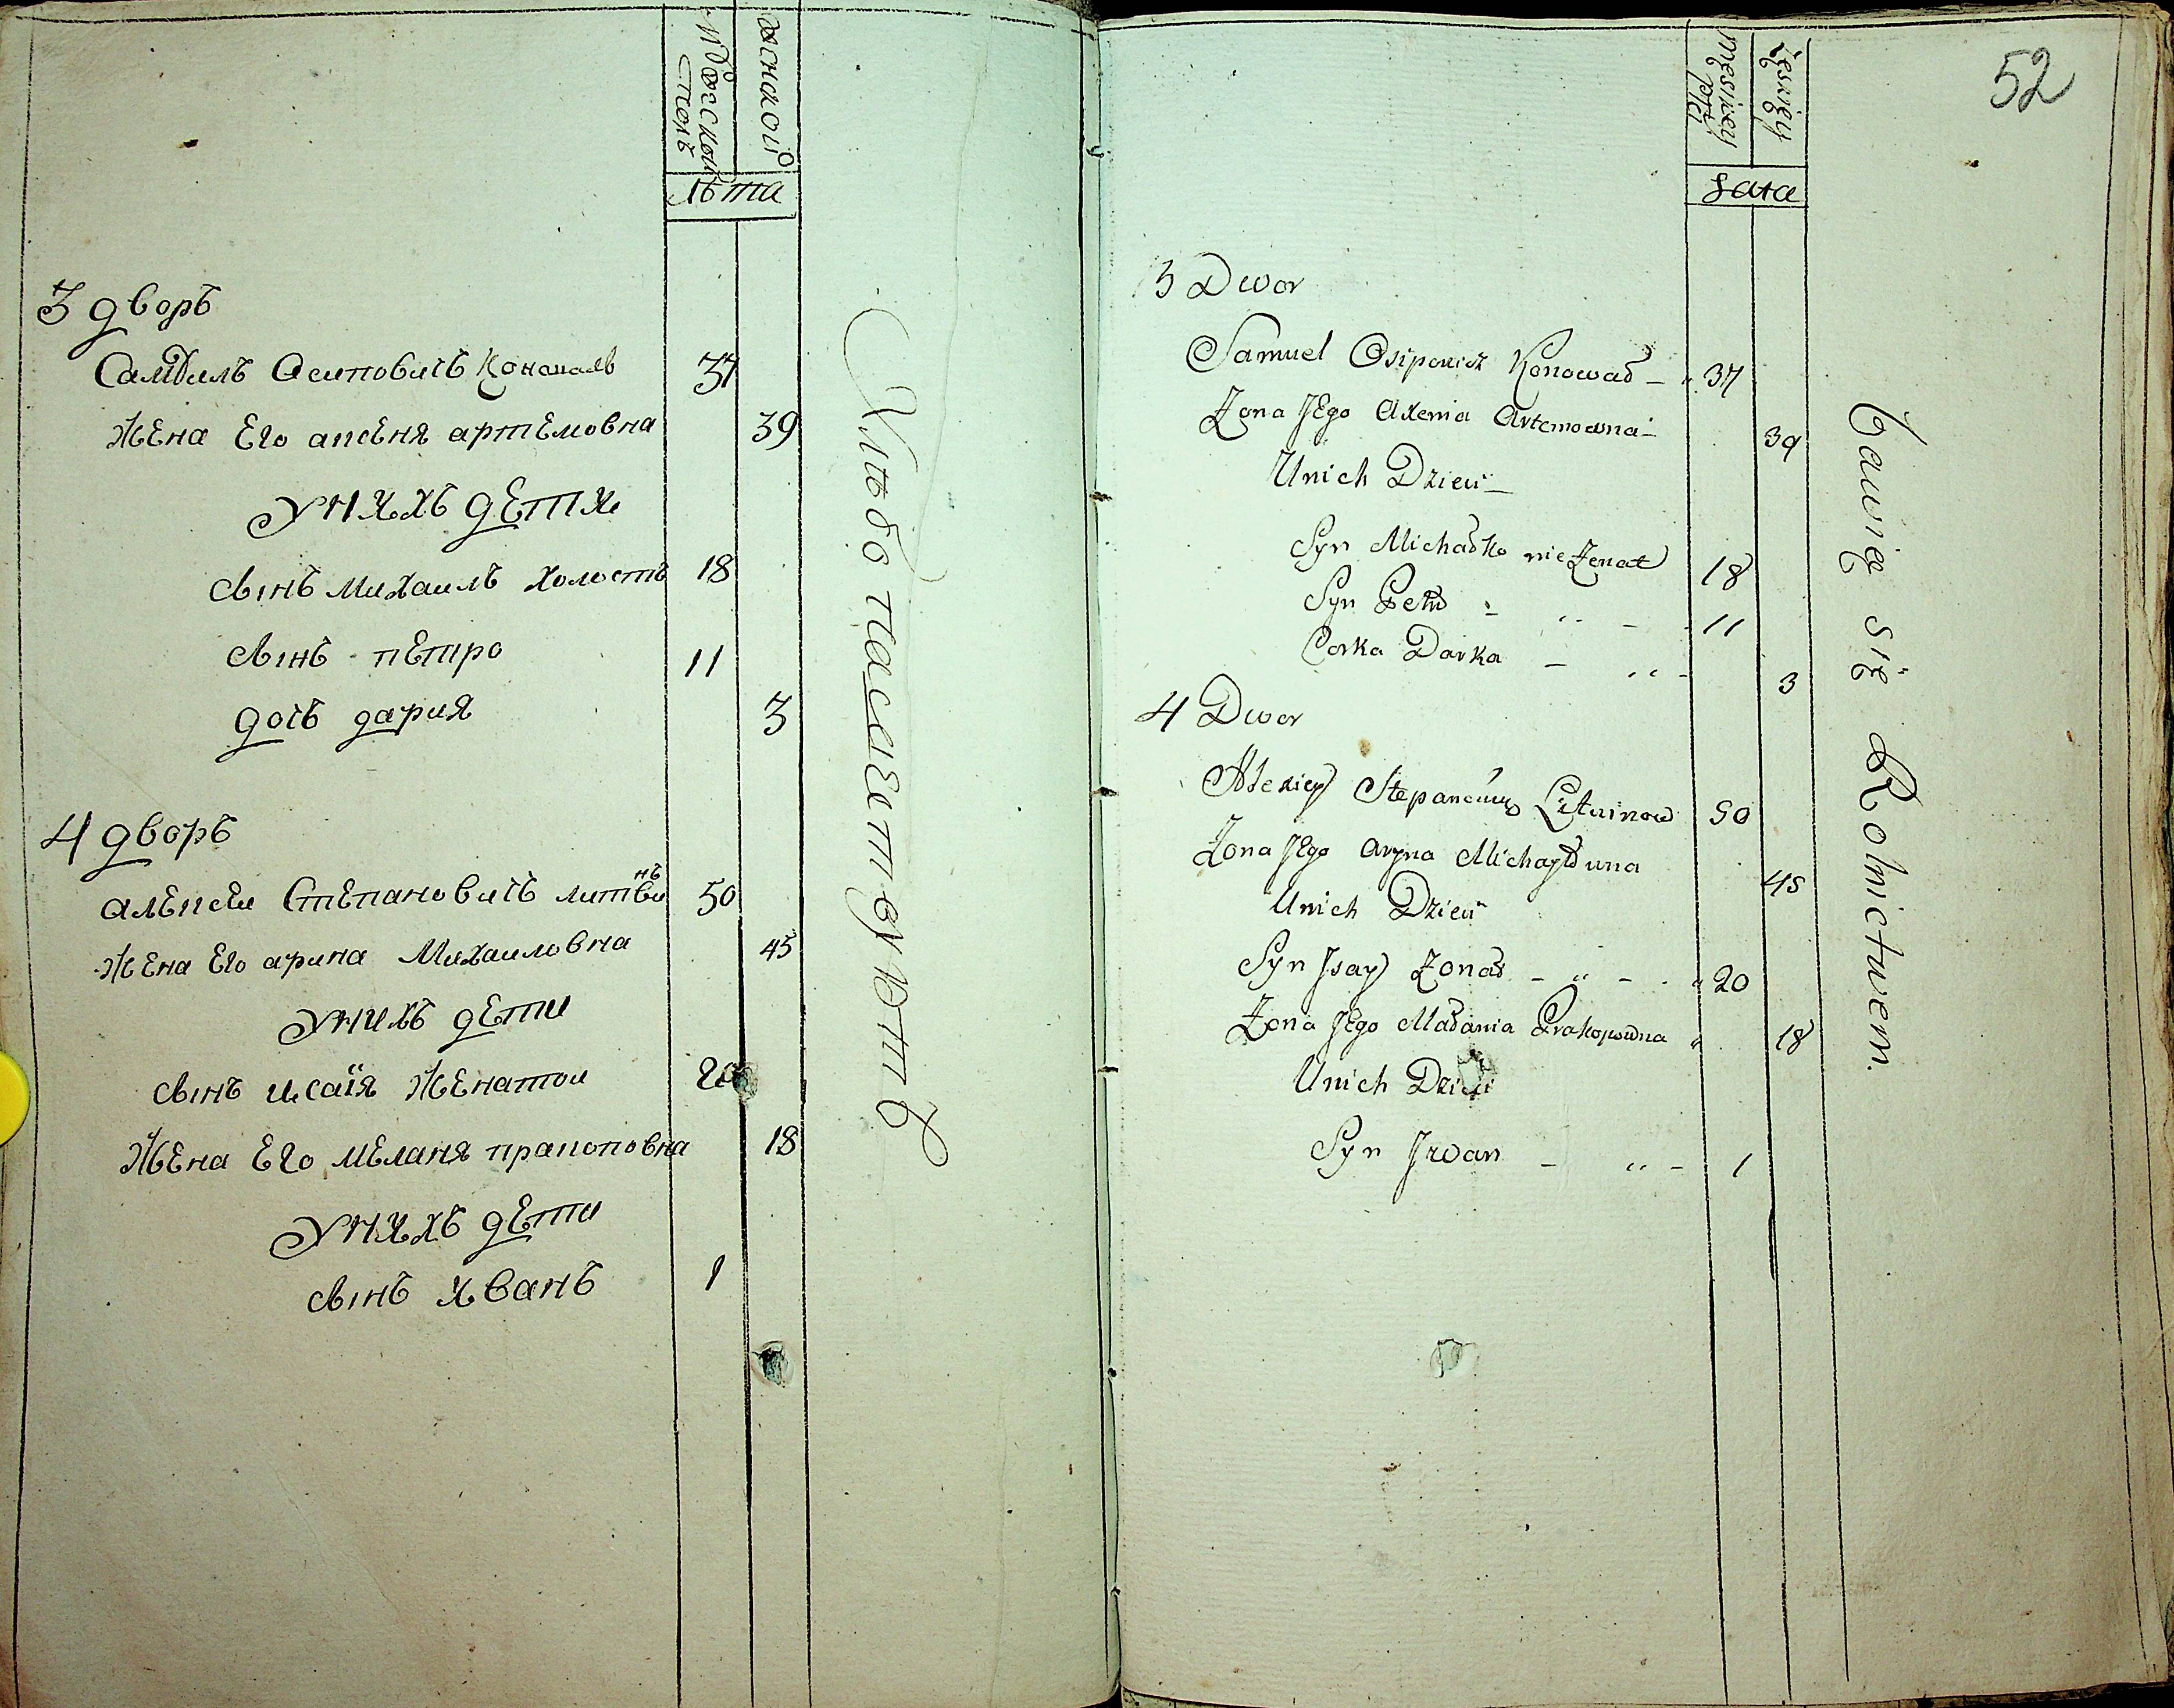 Мꙋжескои
женскои
лѣта
3 дворъ
Самꙋилъ Осиповичъ Коноваль 37
Жена Его аксеня артемовна 39
У них дети
сынъ Михаилъ холостъ 18
сынъ петро 11
дочь дария 3
4 дворъ
алексеи Степановичъ литвинъ 50
Жена Его арина Михаиловна 45
У нихъ дети
сынъ исаія женатои 20
Жена Его меланя пракоповна 18
У нихъ дети
сынъ иванъ 1
Хлѣбопа
52
Męskiey Płci
Żeńskiey
Lata
3 Dwor
Samuel Osipowicz Konował 37
Żona Jego Axenia Artemowna 39
U nich Dzieci
Syn Michałko nie Żenat 18
Syn Petro 11
Corka Darka 3
4 Dwor
Alexiey Stepanowicz Litwinow 50
Żona Jego Aryna Michayłowna 45
U nich Dzieci
Syn Jsay Żonat 20
Żona Jego Małania Prakopowna 18
U nich Dzieci
Syn Jwan 1
bawię się Rolnictwem